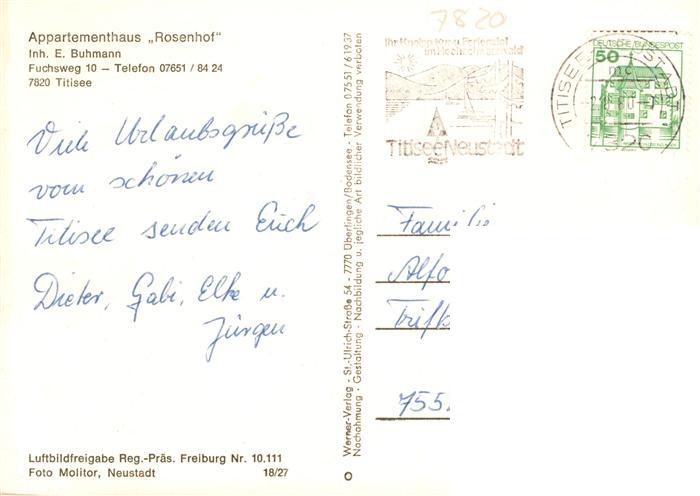 Appartementhaus „Rosenhof"
Inh. E. Buhmann
Fuchsweg 10 — Telefon 07651 / 84 24
7820 Titisee
Viele Urlaubsgrüße
vom schönen
Titisee senden Erich
Dieter, Gabi, Elke u.
Jürgen
Luftbildfreigabe Reg.-Präs. Freiburg Nr. 10.111
Foto Molitor, Neustadt 18/27
Werner-Verlag - St.-Ulrich-Straße 54 - 7770 Überlingen/Bodensee - Telefon 07551 / 61937
Nachahmung - Gestaltung - Nachbildung u. jegliche Art bildlicher Verwendung verboten
7820
Ihr Kneipp Kur u. Ferienziel
im Hochschwarzwald
Titisee Neustadt
DEUTSCHE BUNDESPOST
50
Familie
Alfo
755